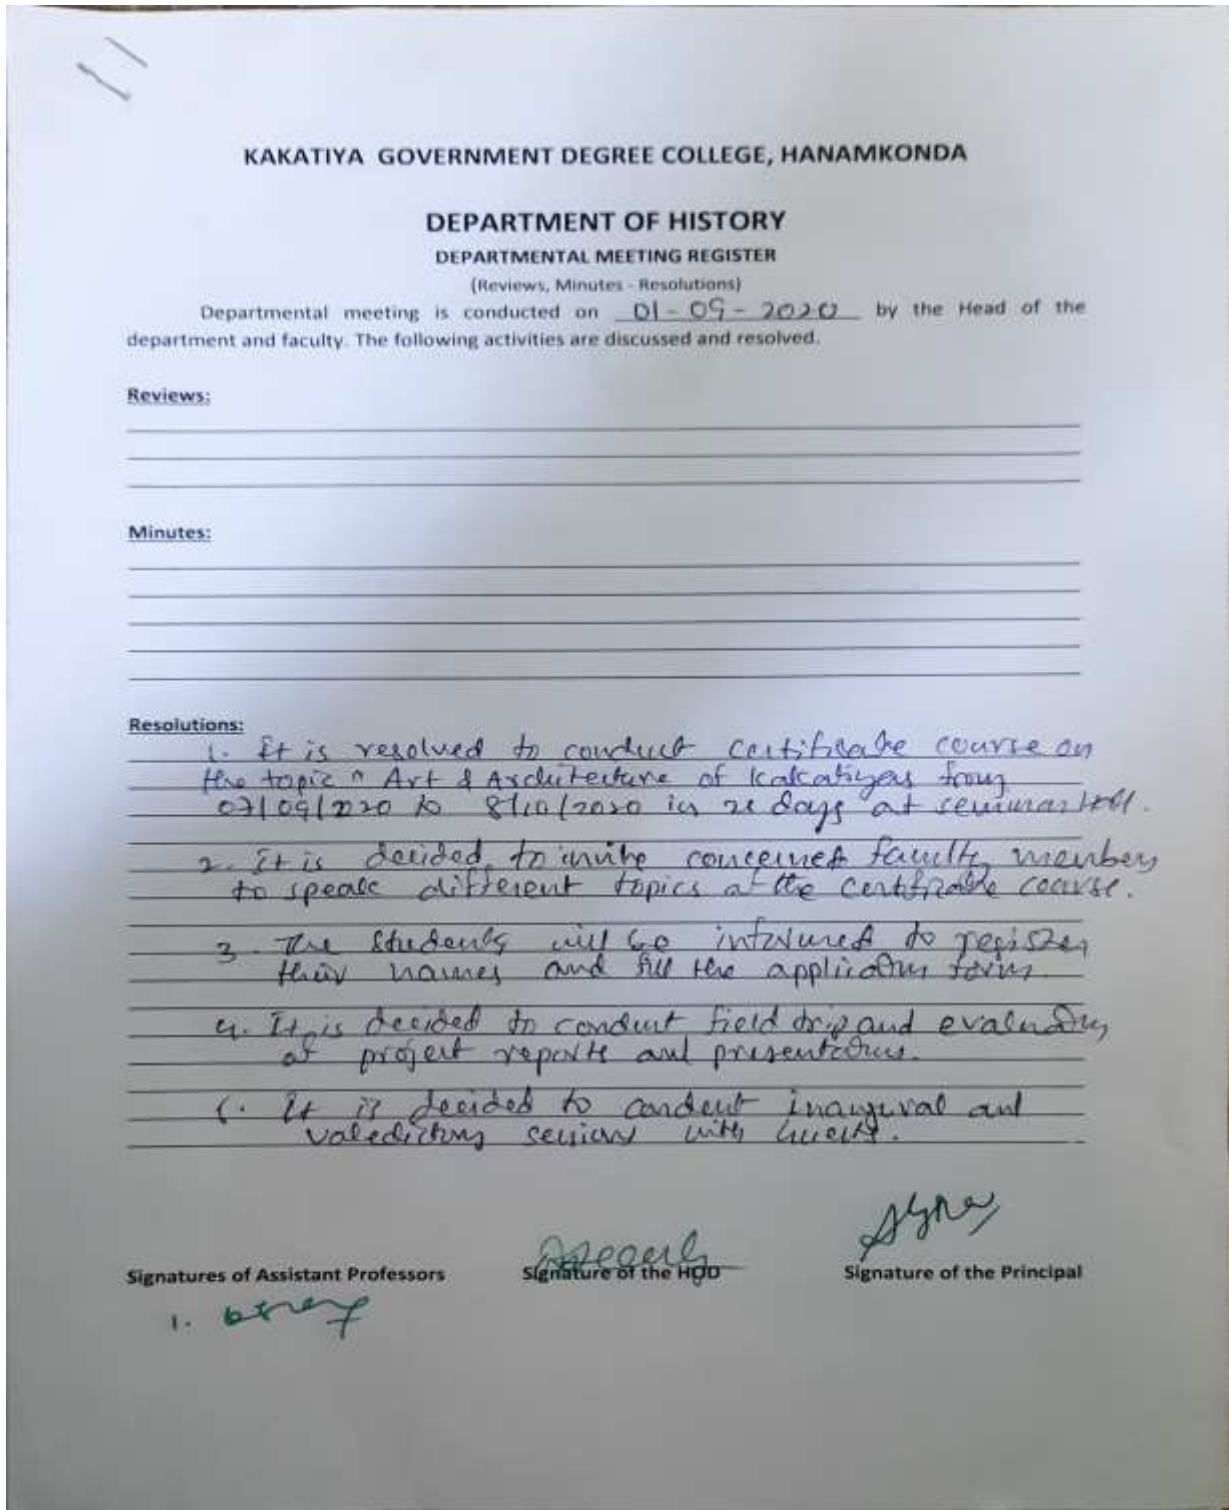 KAKATIYA GOVERNMENT DEGREE COLLEGE, HANAMKONDA
DEPARTMENT OF HISTORY
DEPARTMENTAL MEETING REGISTER
(Reviews, Minutes - Resolutions)
Departmental meeting is conducted on 01-09-2020 by the Head of the
department and faculty. The following activities are discussed and resolved.
Reviews:
Minutes:
Resolutions:
1. It is resolved to conduct certificate course on
the topic " Art & Architecture of Kakatiyas from
07/09/2020 to 8/10/2020 in days at seminar Hall.
2. It is decided to invite concerned faculty members
to speak different topics at the certificate course.
3. The students will be informed to register
their names and fill the application form
4. It is decided to conduct field trip and evaluation
of project reports and presentations.
5. It is decided to conduct inaugural and
valedictory sessions with Guests.
Signatures of Assistant Professors
Signature of the HOD
Signature of the Principal
1.